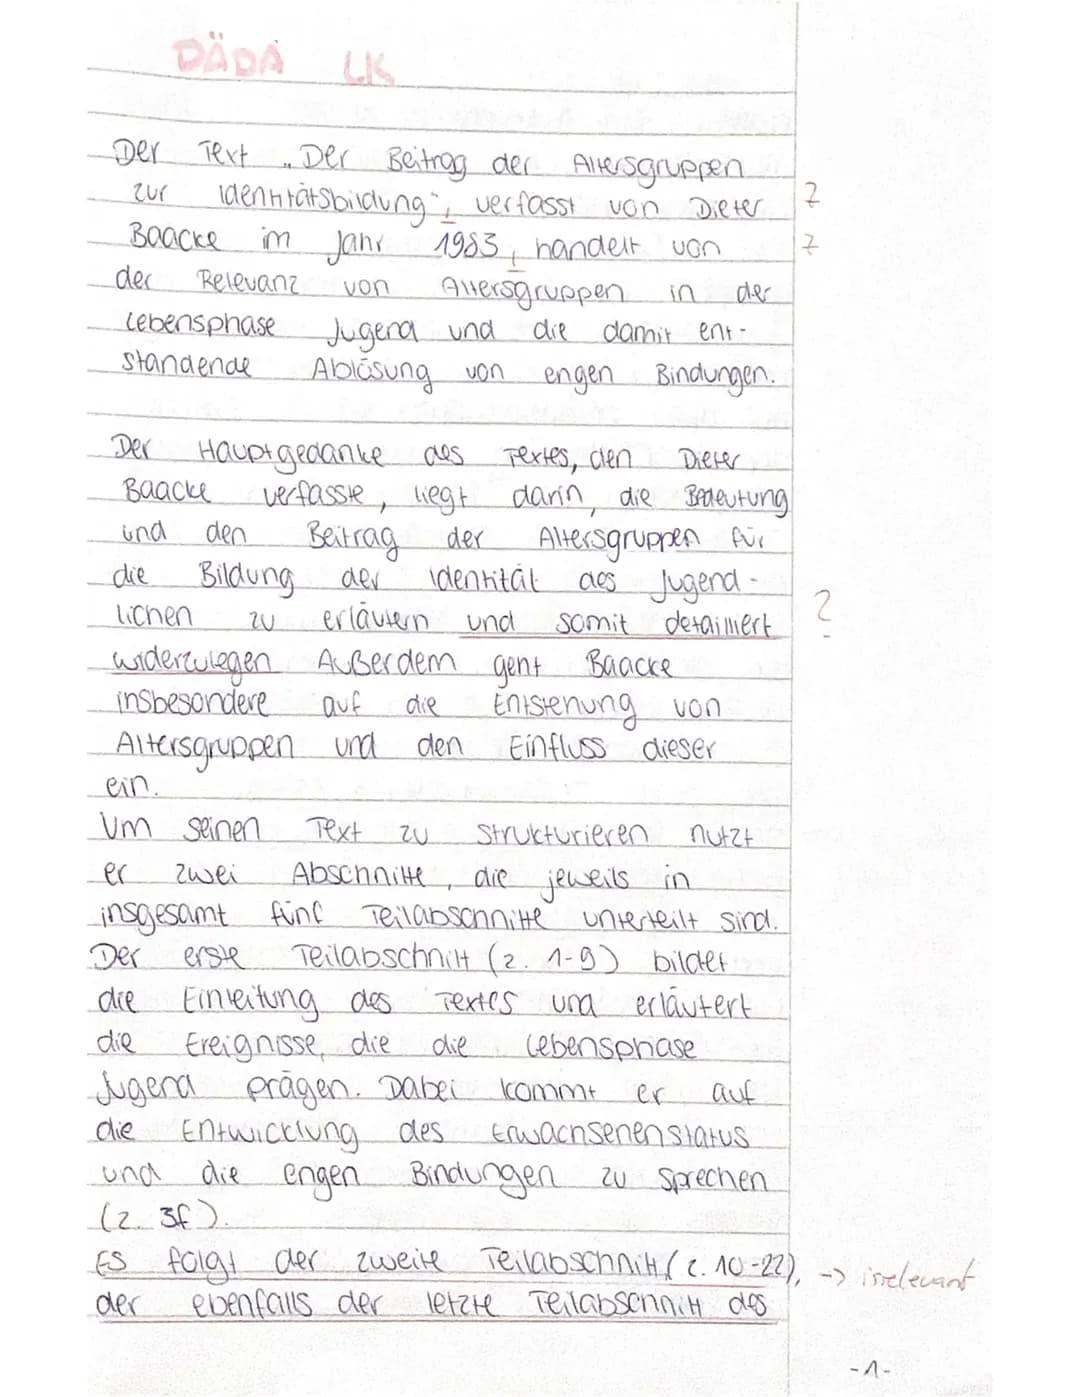 DÄDA LK
Der Text „Der Beitrag der Altersgruppen
zur Identitätsbildung", verfasst von Dieter
Z
Baacke im Jahr 1983, handelt von
Z
der Relevanz von Altersgruppen in der
Lebensphase Jugend und die damit ent-
standende Ablösung von engen Bindungen.
Der Hauptgedanke des Textes, den Dieter
Baacke verfasste, liegt darin, die Bedeutung
und den Beitrag der Altersgruppen für
die Bildung der Identität des Jugend-
lichen zu erläutern und somit detailliert
?
widerzulegen Außerdem geht Baacke
insbesondere auf die Entstehung von
Altersgruppen und den Einfluss dieser
ein.
Um seinen Text zu strukturieren nutzt
er zwei Abschnitte, die jeweils in
insgesamt fünf Teilabschnitte unterteilt sind.
Der erste Teilabschnitt (z. 1-9) bildet
die Einleitung des Textes und erläutert
die Ereignisse, die die Lebensphase
Jugend prägen. Dabei kommt er auf
die Entwicklung des Erwachsenenstatus
und die engen Bindungen zu sprechen
(z. 3f).
Es folgt der zweite Teilabschnitt (z. 10-22), -> irrelevant
der ebenfalls der letzte Teilabschnitt des
-1-